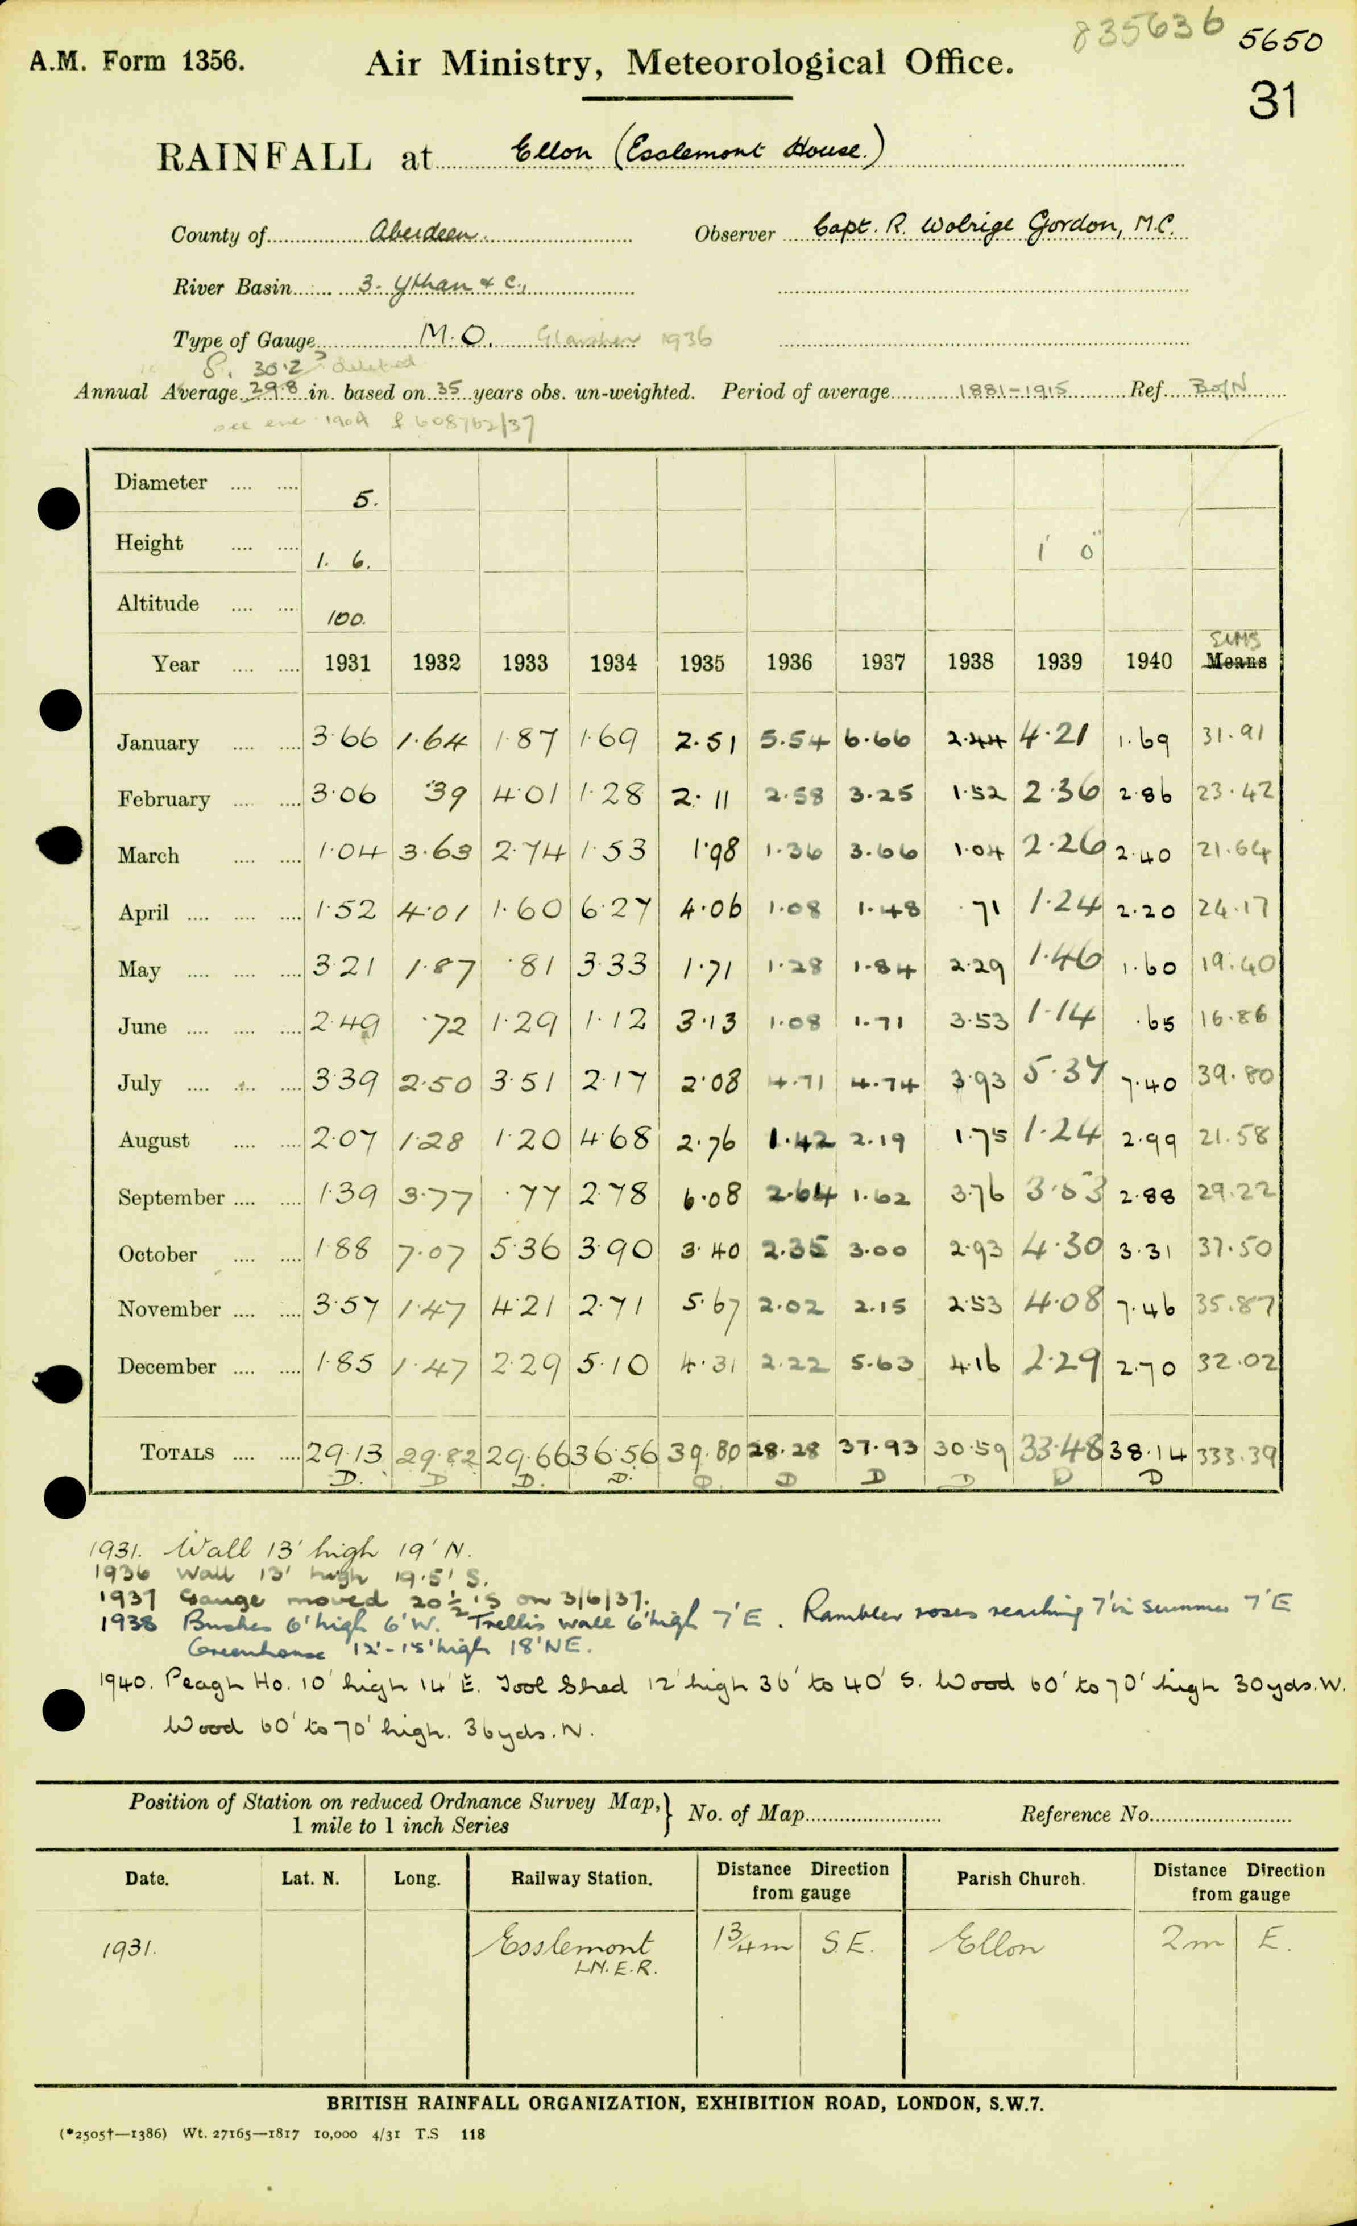 835636 5650
A.M. Form 1356. Air Ministry, Meteorological Office.
31
RAINFALL at Ellon (Esslemont House.)
County of Aberdeen. Observer Capt. R. Wolrige Gordon, M.C.
River Basin 3. Ythan & c.,
Type of Gauge M.O. Glaisher 1936
8. 30.2 deleted
Annual Average 29.8 in. based on 35 years obs. un-weighted. Period of average 1881-1915 Ref. B of N
608762/37
Diameter 5.
Height 1. 6. 1' 0"
Altitude 100.
SUMS
Year 1931 1932 1933 1934 1935 1936 1937 1938 1939 1940 Means
January 3.66 1.64 1.87 1.69 2.51 5.54 6.66 2.44 4.21 1.69 31.91
February 3.06 .39 4.01 1.28 2.11 2.58 3.25 1.52 2.36 2.86 23.42
March 1.04 3.63 2.74 1.53 1.98 1.36 3.66 1.04 2.26 2.40 21.64
April 1.52 4.01 1.60 6.27 4.06 1.08 1.48 .71 1.24 2.20 24.17
May 3.21 1.87 .81 3.33 1.71 1.28 1.84 2.29 1.46 1.60 19.40
June 2.49 .72 1.29 1.12 3.13 1.08 1.71 3.53 1.14 .65 16.86
July 3.39 2.50 3.51 2.17 2.08 4.71 4.74 3.93 5.37 7.40 39.80
August 2.07 1.28 1.20 4.68 2.76 1.42 2.19 1.75 1.24 2.99 21.58
September 1.39 3.77 .77 2.78 6.08 2.64 1.62 3.76 3.53 2.88 29.22
October 1.88 7.07 5.36 3.90 3.40 2.35 3.00 2.93 4.30 3.31 37.50
November 3.57 1.47 4.21 2.71 5.67 2.02 2.15 2.53 4.08 7.46 35.87
December 1.85 1.47 2.29 5.10 4.31 2.22 5.63 4.16 2.29 2.70 32.02
TOTALS 29.13 29.82 29.66 36.56 39.80 28.28 37.93 30.59 33.48 38.14 333.39
D. D D. D. D. D D D D D
1931. Wall 13' high 19' N.
1936 Wall 13' high 19.5' S.
1937 Gauge moved 20½' S on 3/6/37.
1938 Bushes 6' high 6' W. Trellis wall 6' high 7' E. Rambler roses reaching 7' in summer 7' E
Greenhouse 12'-15' high 18' NE.
1940. Peach Ho. 10' high 14' E. Tool Shed 12' high 36' to 40' S. Wood 60' to 70' high 30 yds. W.
Wood 60' to 70' high. 36 yds. N.
Position of Station on reduced Ordnance Survey Map, 1 mile to 1 inch Series } No. of Map Reference No.
Date. Lat. N. Long. Railway Station. Distance Direction from gauge Parish Church. Distance Direction from gauge
1931. Esslemont 1¾m S.E. Ellon 2m E.
L.N.E.R.
BRITISH RAINFALL ORGANIZATION, EXHIBITION ROAD, LONDON, S.W.7.
(*2505†—1386) Wt. 27165—1817 10,000 4/31 T.S 118